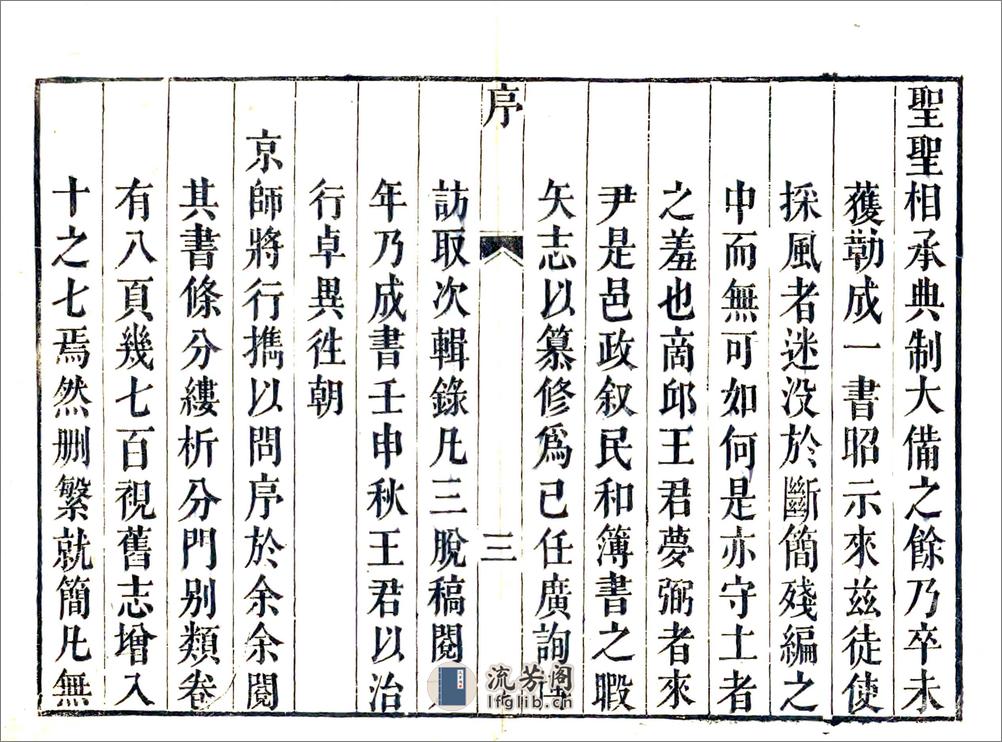 聖聖相承典制大備之餘乃卒未
獲勒成一書昭示來茲徒使
採風者迷没於斷簡殘編之
中而無可如何是亦守土者
之羞也商邱王君夢弼者來
尹是邑政叙民和簿書之暇
矢志以纂修爲己任廣詢
序
三
訪取次輯錄凡三脫稿閱
年乃成書壬申秋王君以治
行卓異徃朝
京師將行攜以問序於余余閱
其書條分縷析分門别類卷
有八頁幾七百視舊志增入
十之七焉然删繁就簡凡無
流芳阁
lfglib.cn